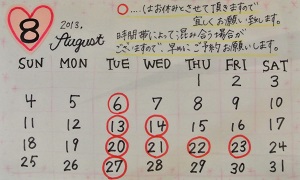 8 2013. August
○....はお休みとさせて頂きますので
宜しくお願い致します。
時間帯によって混み合う場合が
ございますので、早めにご予約お願いします。
SUN MON TUE WED THU FRI SAT
1 2 3
4 5 6 7 8 9 10
11 12 13 14 15 16 17
18 19 20 21 22 23 24
25 26 27 28 29 30 31